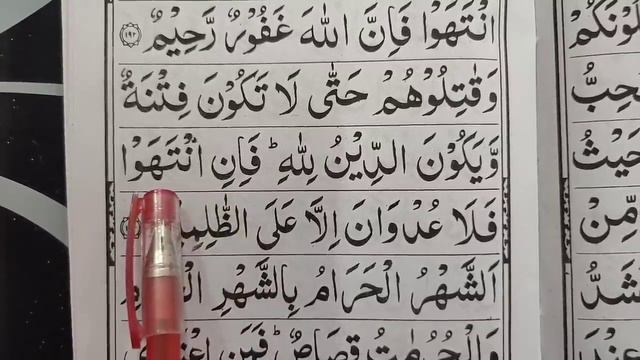 انْتَهَوْا فَاِنَّ اللّٰهَ غَفُوْرٌ رَّحِيْمٌ ﴿۱۹۲﴾
وَقٰتِلُوْهُمْ حَتّٰى لَا تَكُوْنَ فِتْنَةٌ
وَّيَكُوْنَ الدِّيْنُ لِلّٰهِ ؕ فَاِنِ انْتَهَوْا
فَلَا عُدْوَانَ اِلَّا عَلَى
اَلشَّهْرُ الْحَرَامُ بِالشَّهْرِ
وَالْحُرُمٰتُ قِصَاصٌ ؕ فَمَنِ
حَيْثُ
مِّنْ